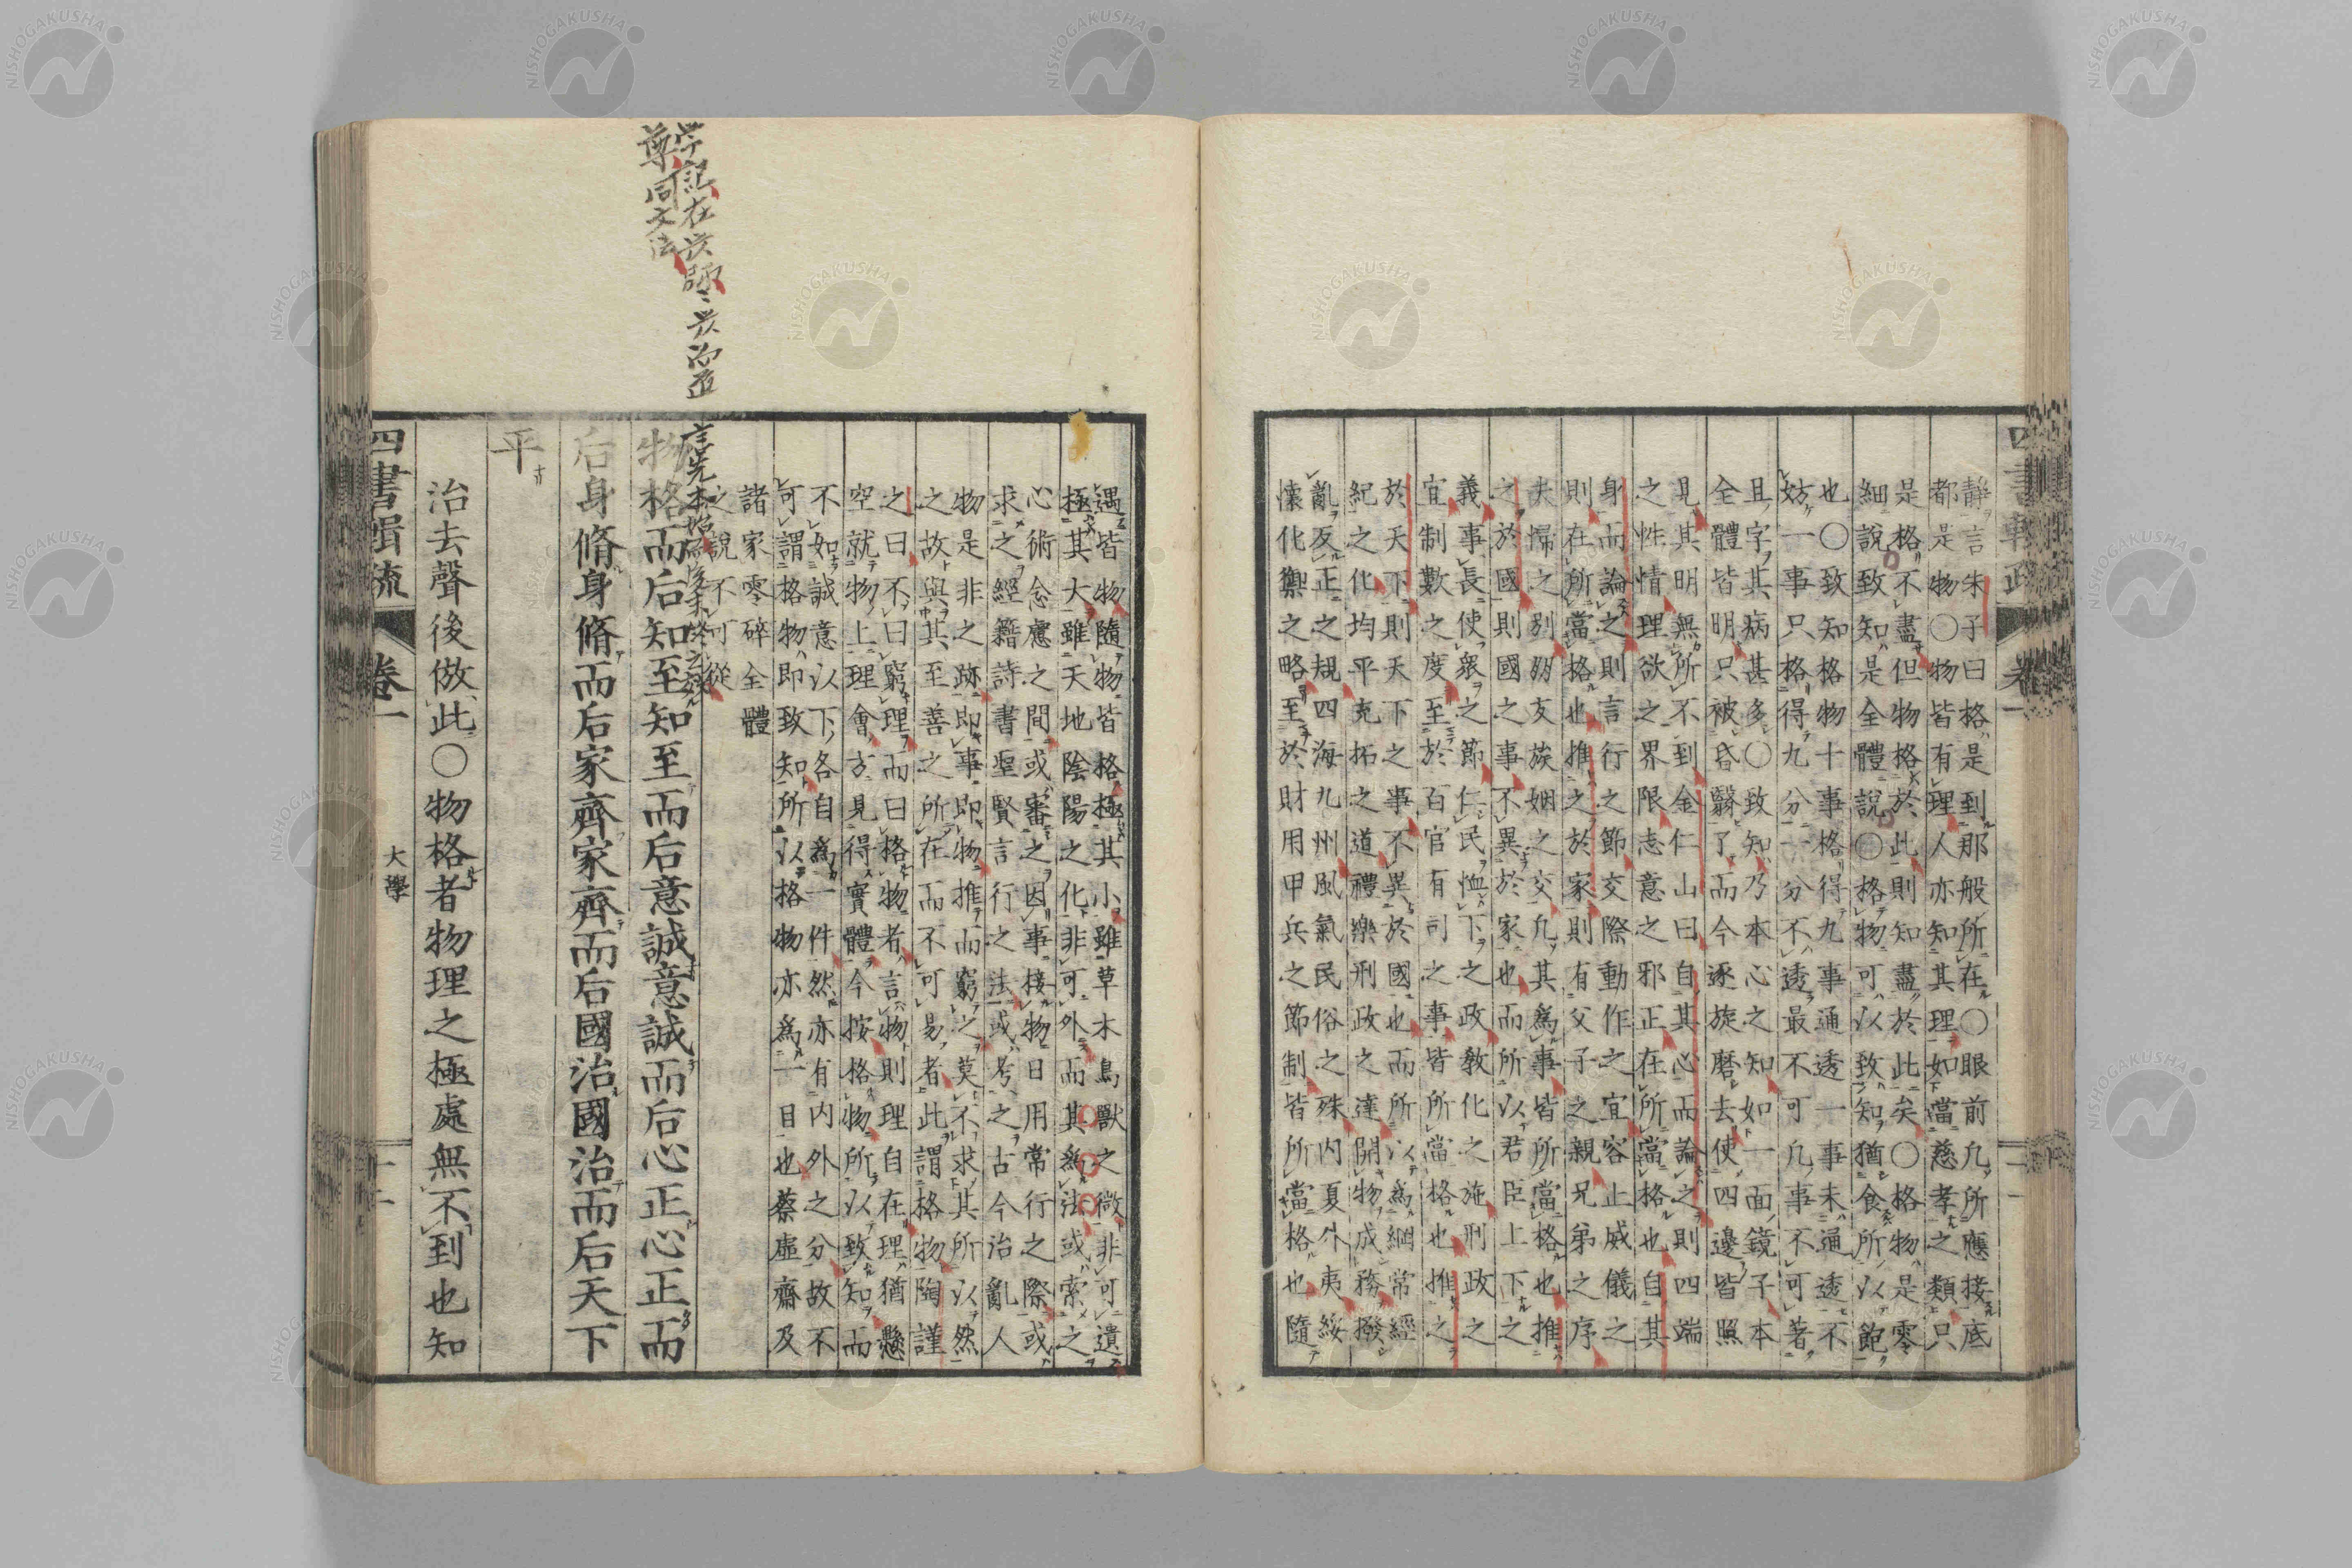 静言朱子曰格是到那般所在〇眼前凡所應接底
都是物〇物皆有理人亦知其理如當慈孝之類只
是格不盡但物格於此則知盡於此矣〇格物是零
細說致知是全體說〇格物可以致知猶食所以飽
也〇致知格物十事格得九事通透一事未通透不
妨一事只格得九分一分不透最不可凡事不可著
且字其病甚多〇致知乃本心之知如一面鏡子本
全體皆明只被昏翳了而今逐旋磨去使四邊皆照
見其明無所不到金仁山曰自其心而論之則四端
之性情理欲之界限志意之邪正在所當格也自其
身而論之則言行之節交際動作之宜容止威儀之
則在所當格也推之於家則有父子之親兄弟之序
夫婦之別朋友族姻之交凡其爲事皆所當格也推
之於國則國之事不異於家也而所以君臣上下之
義事長使衆之節仁民恤下之政教化之施刑政之
宜制數之度至於百官有司之事皆所當格也推之
於天下則天下之事不異於國也而所以爲綱常經
紀之化均平充拓之道禮樂刑政之達開物成務撥
亂反正之規四海九州風氣民俗之殊内夏外夷綏
懷化禦之略至於財用甲兵之節制皆所當格也隨
遇皆物隨物皆格極其小雖草木鳥獸之微非可遺
極其大雖天地陰陽之化非可外而其爲法或索之
心術念慮之間或審之因事接物日用常行之際或
求之經籍詩書聖賢言行之法或考之古今治亂人
物是非之跡即事即物推而窮之莫不求其所以然
之故與其至善之所在而不可易者此謂格物陶謹
之曰不曰窮理而曰格物者言物則理自在理猶懸
空就物上理會方見得實體今按格物所以致知而
不如誠意以下各自爲一件然亦有内外之分故不
可謂格物即致知所以格物亦爲一目也蔡虛齋及
諸家零碎全體
之說不可從
物格而后知至知至而后意誠意誠而后心正心正而
后身脩身脩而后家齊家齊而后國治國治而后天下
平
治去聲後倣此〇物格者物理之極處無不到也知
四書輯疏 卷一 大學